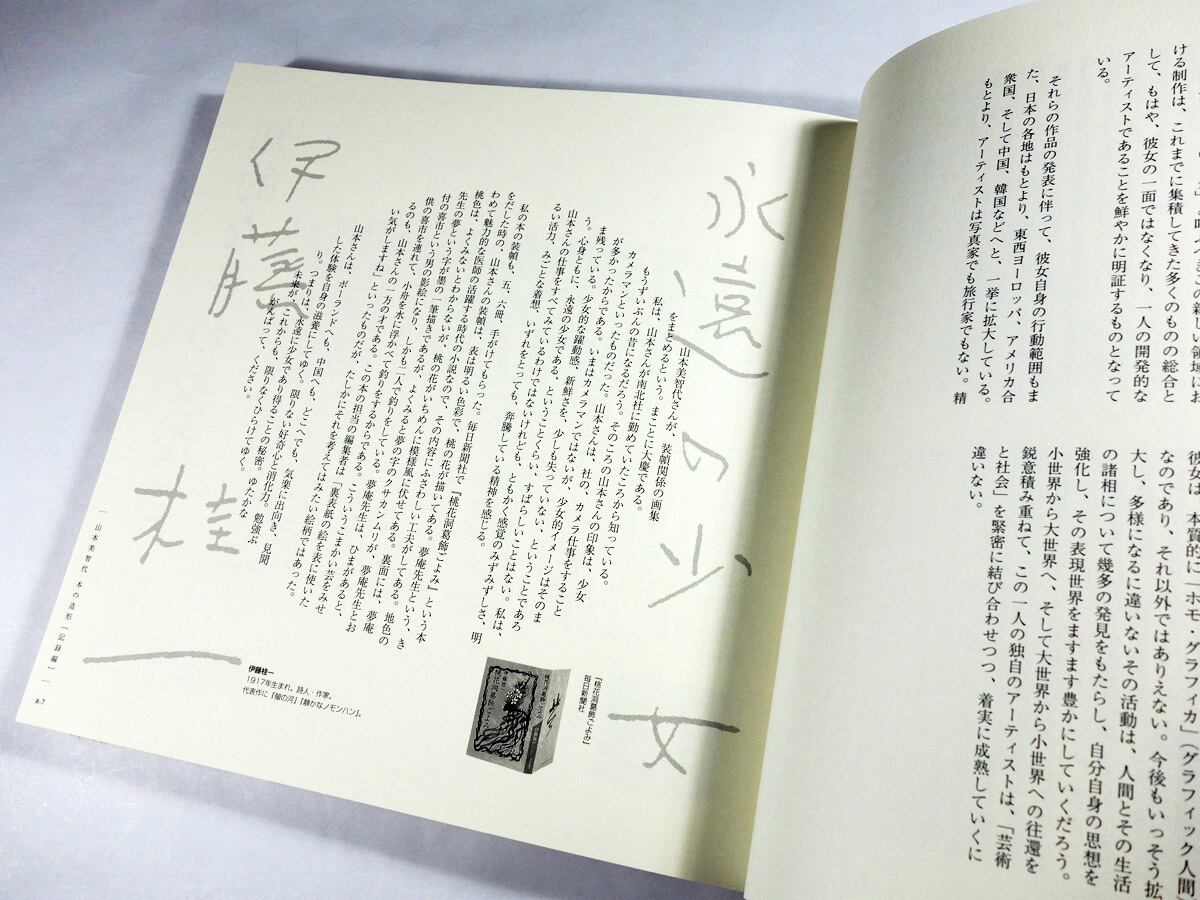 ける制作は、これまでに集積してきた多くのものの総合と
して、もはや、彼女の一面ではなくなり、一人の開発的な
アーティストであることを鮮やかに明証するものとなって
いる。
それらの作品の発表に伴って、彼女自身の行動範囲もま
た、日本の各地はもとより、東西ヨーロッパ、アメリカ合
衆国、そして中国、韓国などへと、一挙に拡大している。
もとより、アーティストは写真家でも旅行家でもない。精
彼女は、本質的に「ホモ・グラフィカ」(グラフィック人間)
なのであり、それ以外ではありえない。今後もいっそう拡
大し、多様になるに違いないその活動は、人間とその生活
の諸相について幾多の発見をもたらし、自分自身の思想を
強化し、その表現世界をますます豊かにしていくだろう。
小世界から大世界へ、そして大世界から小世界への往還を
鋭意積み重ねて、この一人の独自のアーティストは、「芸術
と社会」を緊密に結び合わせつつ、着実に成熟していくに
違いない。
永遠の少女
山本美智代さんが、装幀関係の画集
をまとめるという。まことに大慶である。
私は、山本さんが南北社に勤めていたころから知っている。
もうずいぶんの昔になるだろう。そのころの山本さんの印象は、少女
カメラマンといったものだった。山本さんは、社の、カメラ仕事をすること
が多かったからである。いまはカメラマンではないが、少女的イメージはそのま
ま残っている。少女的な躍動感、新鮮さを、少しも失っていない、ということであろ
う。心身ともに、永遠の少女である、ということくらい、すばらしいことはない。私は、
山本さんの仕事をすべてみているわけではないけれども、ともかく感覚のみずみずしさ、明
るい活力、みごとな着想、いずれをとっても、奔騰している精神を感じる。
私の本の装幀も、五、六冊、手がけてもらった。毎日新聞社で『桃花洞葛飾ごよみ』という本
をだした時の、山本さんの装幀は、表は明るい色彩で、桃の花が描いてある。夢庵先生という、き
わめて魅力的な医師の活躍する時代の小説なので、その内容にふさわしい工夫がしてある。裏面には、地色の
桃色は、よくみないとわからないが、桃の花がいちめんに模様風に伏せてある。夢庵
先生の夢という字が墨の一筆描きであるが、よくみると夢の字のクサカンムリが、夢庵先生とお
付の喜市という男の影絵になり、しかも二人で釣りをしている。夢庵先生は、ひまがあると、
供の喜市を連れて、小舟を水に浮かべて釣りをするからである。こういうこまかい芸をみせ
るのも、山本さんの一方の才である。この本の担当の編集者は「裏表紙の絵を表に使いた
い気がしますね」といったものだが、たしかにそれを考えてはみたい絵柄ではあった。
山本さんは、ポーランドへも、中国へも、どこへでも、気楽に出向き、見聞
した体験を自身の滋養にしてゆく。限りない好奇心と消化力。勉強ぶ
り。つまりは、永遠に少女であり得ることの秘密。ゆたかな
未来が、これからも、限りなくひらけてゆく。
がんばって、ください。
伊藤桂一
『桃花洞葛飾ごよみ』
毎日新聞社
伊藤桂一
1917年生まれ。詩人・作家。
代表作に「螢の河」「静かなノモンハン」。
山本美智代 本の造形[記録編]
R-7